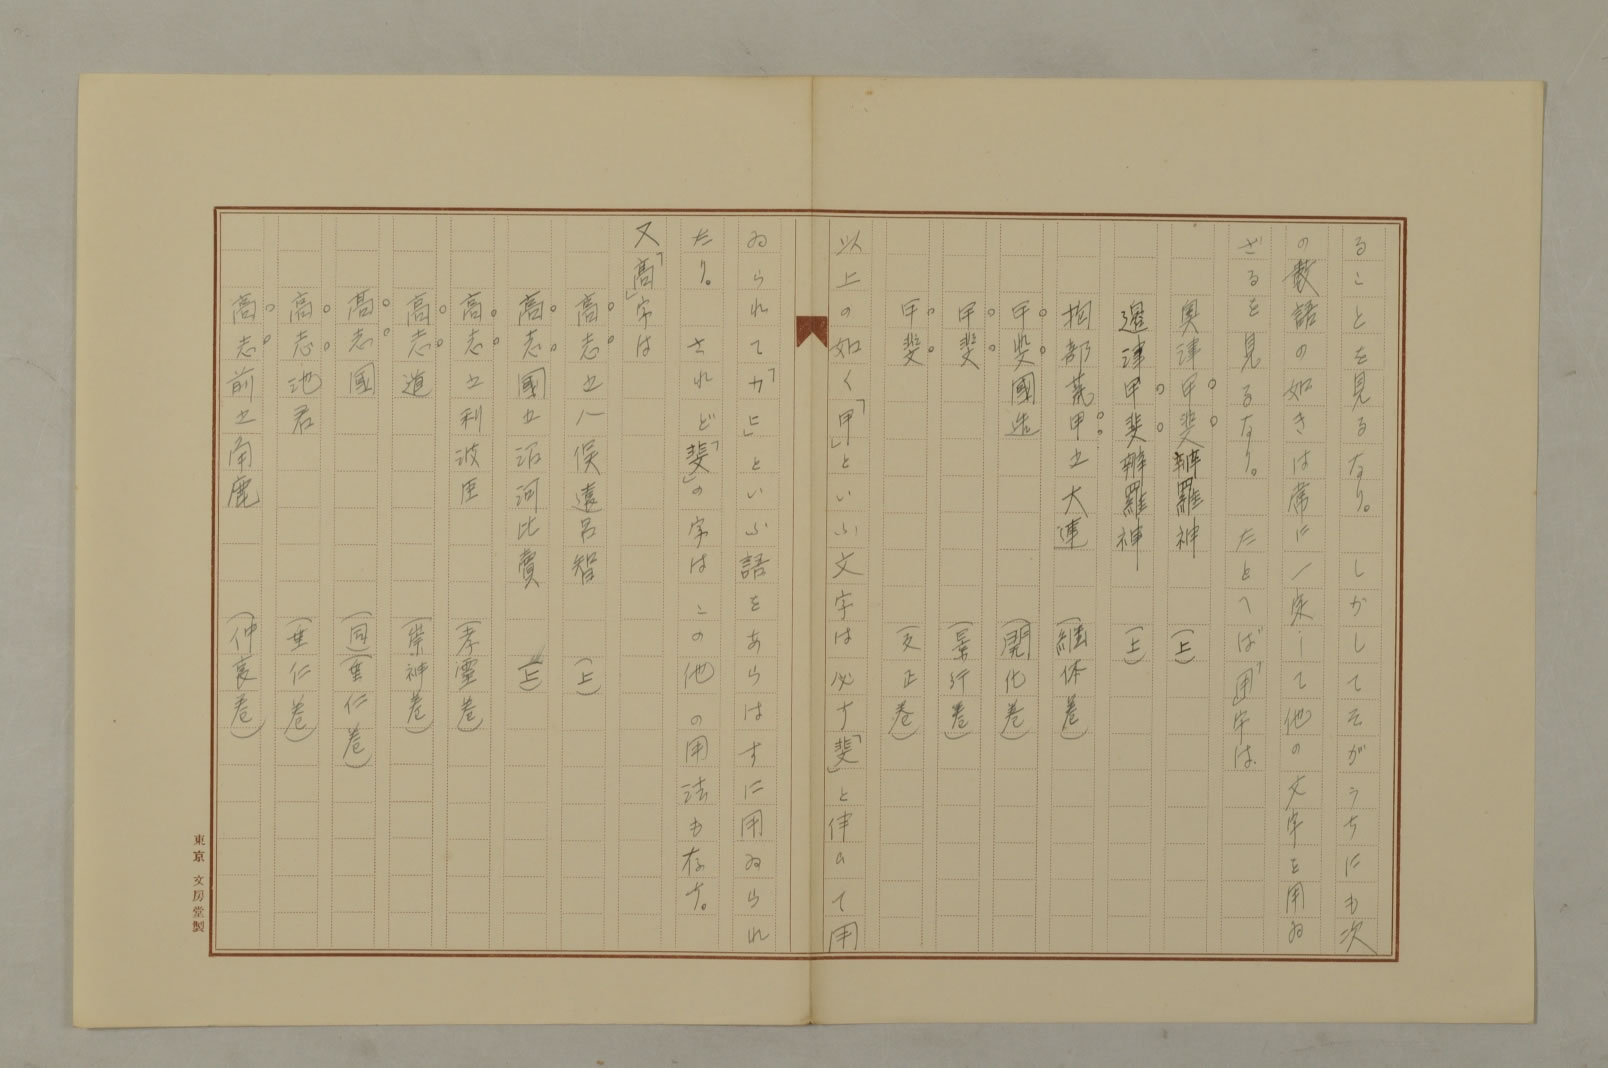 ることを見るなり。　しかしてそがうちにも次
の数語の如きは常に一定して他の文字を用ゐ
ざるを見るなり。　たとへば「甲」字は
奥津甲斐辨羅神　（上）
邊津甲斐辨羅神　（上）
物部荒甲之大連　（継体巻）
甲斐國造　（開化巻）
甲斐　（景行巻）
甲斐　（反正巻）
以上の如く「甲」といふ文字は必ず「斐」と伴ひて用
ゐられて「カヒ」といふ語をあらはすに用ゐられ
たり。　されど「斐」の字はこの他の用法も存す。
又「高」字は
高志之八俣遠呂智　（上）
高志國之沼河比賣　（上）
高志之利波臣　（孝霊巻）
高志道　（崇神巻）
高志國　（同）（垂仁巻）
高志池君　（垂仁巻）
高志前之角鹿　（仲哀巻）
東京　文房堂製